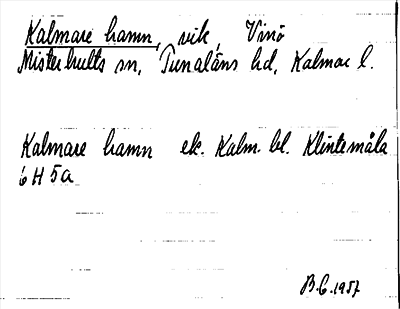 Kalmare hamn, vik, Vinö
Misterhults sn, Tunaläns hd, Kalmar l.
Kalmare hamn ek. Kalm. bl. Klintemåla
6 H 5a
B.C. 1957